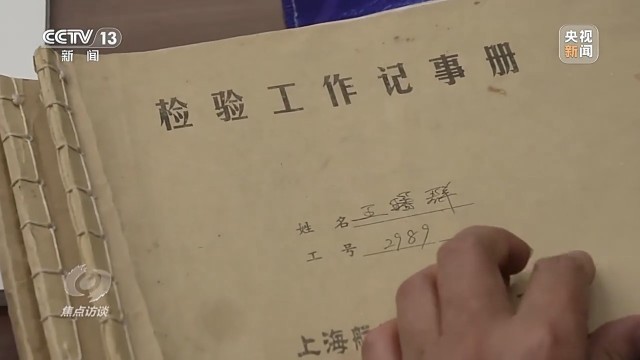 CCTV 13
新闻
央视
新闻
检验工作记事册
姓名
工号 2989
上海
焦点访谈